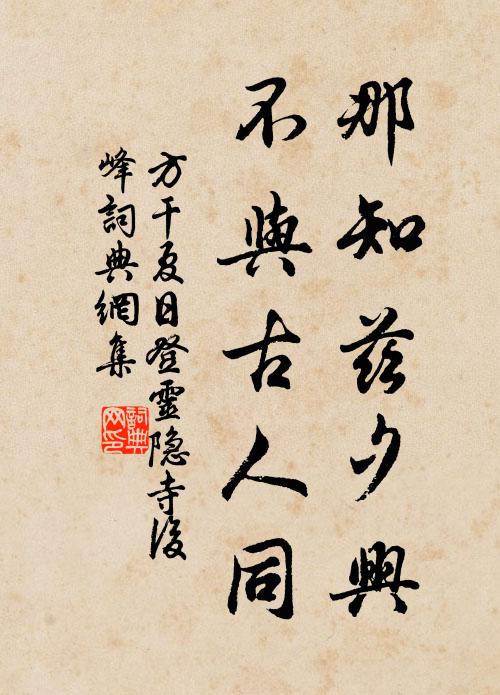 那知茲夕興
不與古人同
方干夏日登靈隐寺後
峰詞典網集
詞典网印